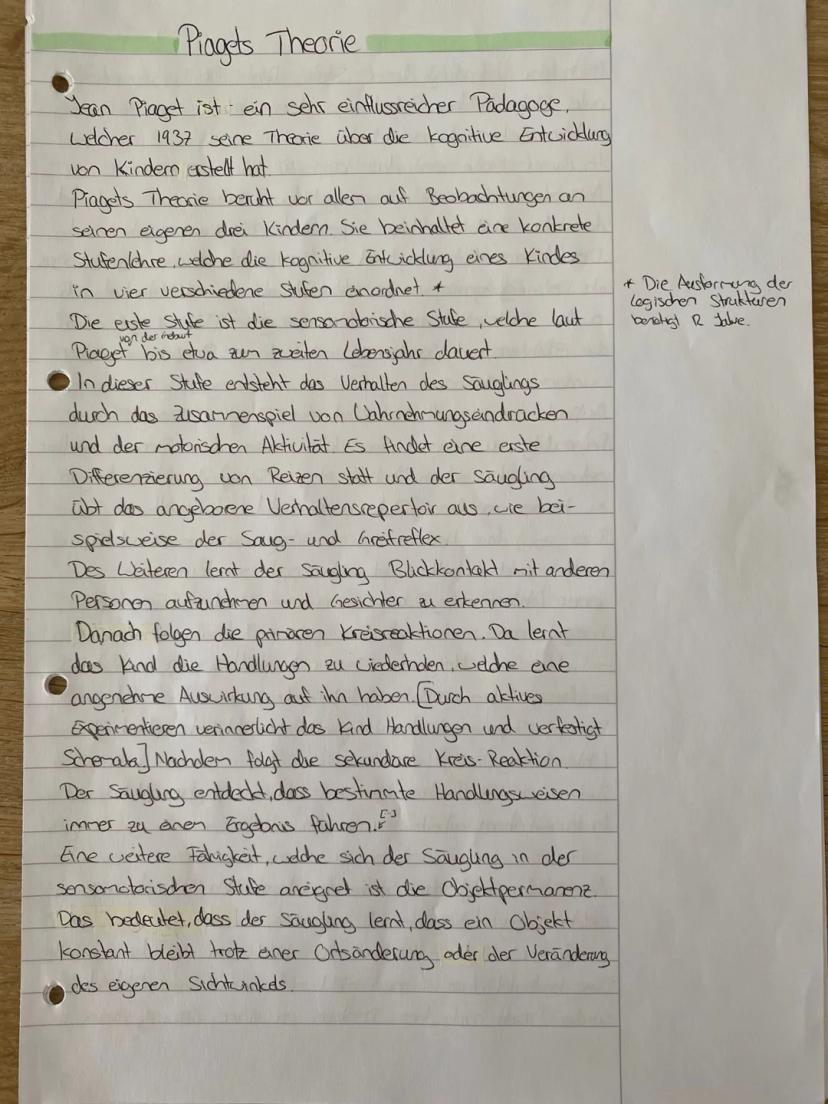 Piagets Theorie
Jean Piaget ist ein sehr einflussreicher Pädagoge,
welcher 1937 seine Theorie über die kognitive Entwicklung
von Kindern erstellt hat.
Piagets Theorie beruht vor allem auf Beobachtungen an
seinen eigenen drei Kindern. Sie beinhaltet eine konkrete
Stufenlehre, welche die kognitive Entwicklung eines Kindes
in vier verschiedene Stufen anordnet. *
* Die Ausformung der
logischen Strukturen
benötigt 12 Jahre.
Die erste Stufe ist die sensomotorische Stufe, welche laut
von der Geburt
Piaget bis etwa zum zweiten Lebensjahr dauert.
In dieser Stufe entsteht das Verhalten des Säuglings
durch das Zusammenspiel von Wahrnehmungseindrücken
und der motorischen Aktivität. Es findet eine erste
Differenzierung von Reizen statt und der Säugling
übt das angeborene Verhaltensrepertoir aus, wie bei-
spielsweise der Saug- und Greifreflex.
Des Weiteren lernt der Säugling Blickkontakt mit anderen
Personen aufzunehmen und Gesichter zu erkennen.
Danach folgen die primären Kreisreaktionen. Da lernt
das Kind die Handlungen zu wiederholen, welche eine
angenehme Auswirkung auf ihn haben. [Durch aktives
Experimentieren verinnerlicht das Kind Handlungen und verfestigt
Schemata] Nachdem folgt die sekundäre Kreis-Reaktion.
Der Säugling entdeckt, dass bestimmte Handlungsweisen
immer zu einem Ergebnis führen. [-]
Eine weitere Fähigkeit, welche sich der Säugling in der
sensomotorischen Stufe aneignet ist die Objektpermanenz.
Das bedeutet, dass der Säugling lernt, dass ein Objekt
konstant bleibt trotz einer Ortsänderung oder der Veränderung
des eigenen Sichtwinkels.